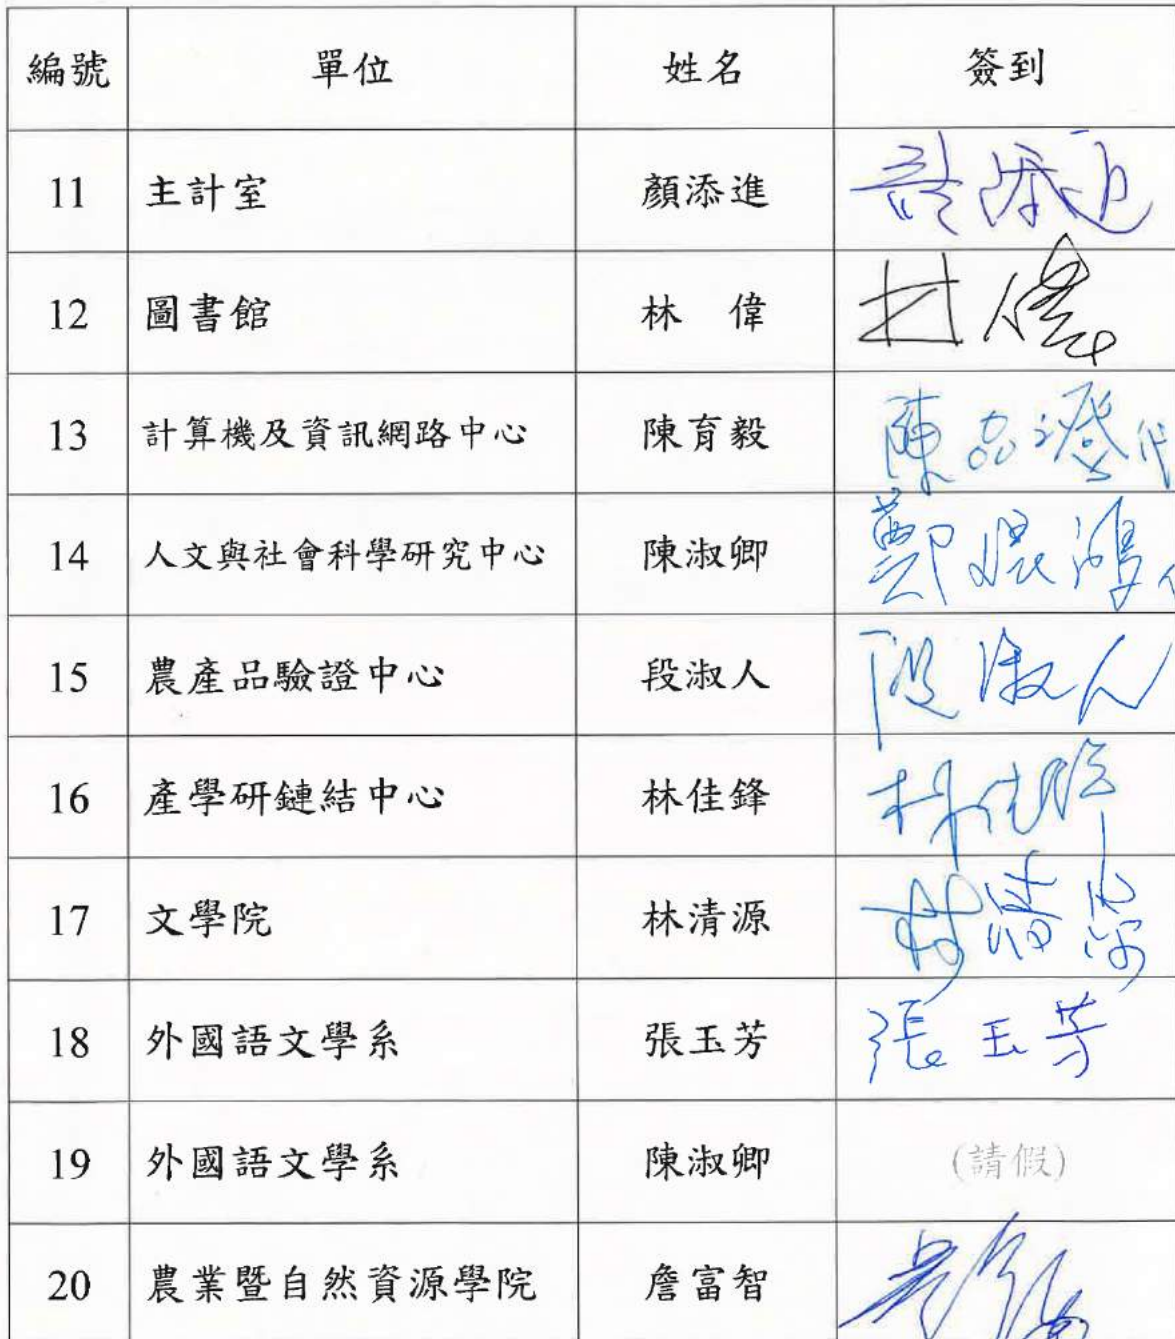 編號 單位 姓名 簽到
11 主計室 顏添進
12 圖書館 林 偉 林偉
13 計算機及資訊網路中心 陳育毅
14 人文與社會科學研究中心 陳淑卿
15 農產品驗證中心 段淑人 段淑人
16 產學研鏈結中心 林佳鋒 林佳鋒
17 文學院 林清源 林清源
18 外國語文學系 張玉芳 張玉芳
19 外國語文學系 陳淑卿 (請假)
20 農業暨自然資源學院 詹富智